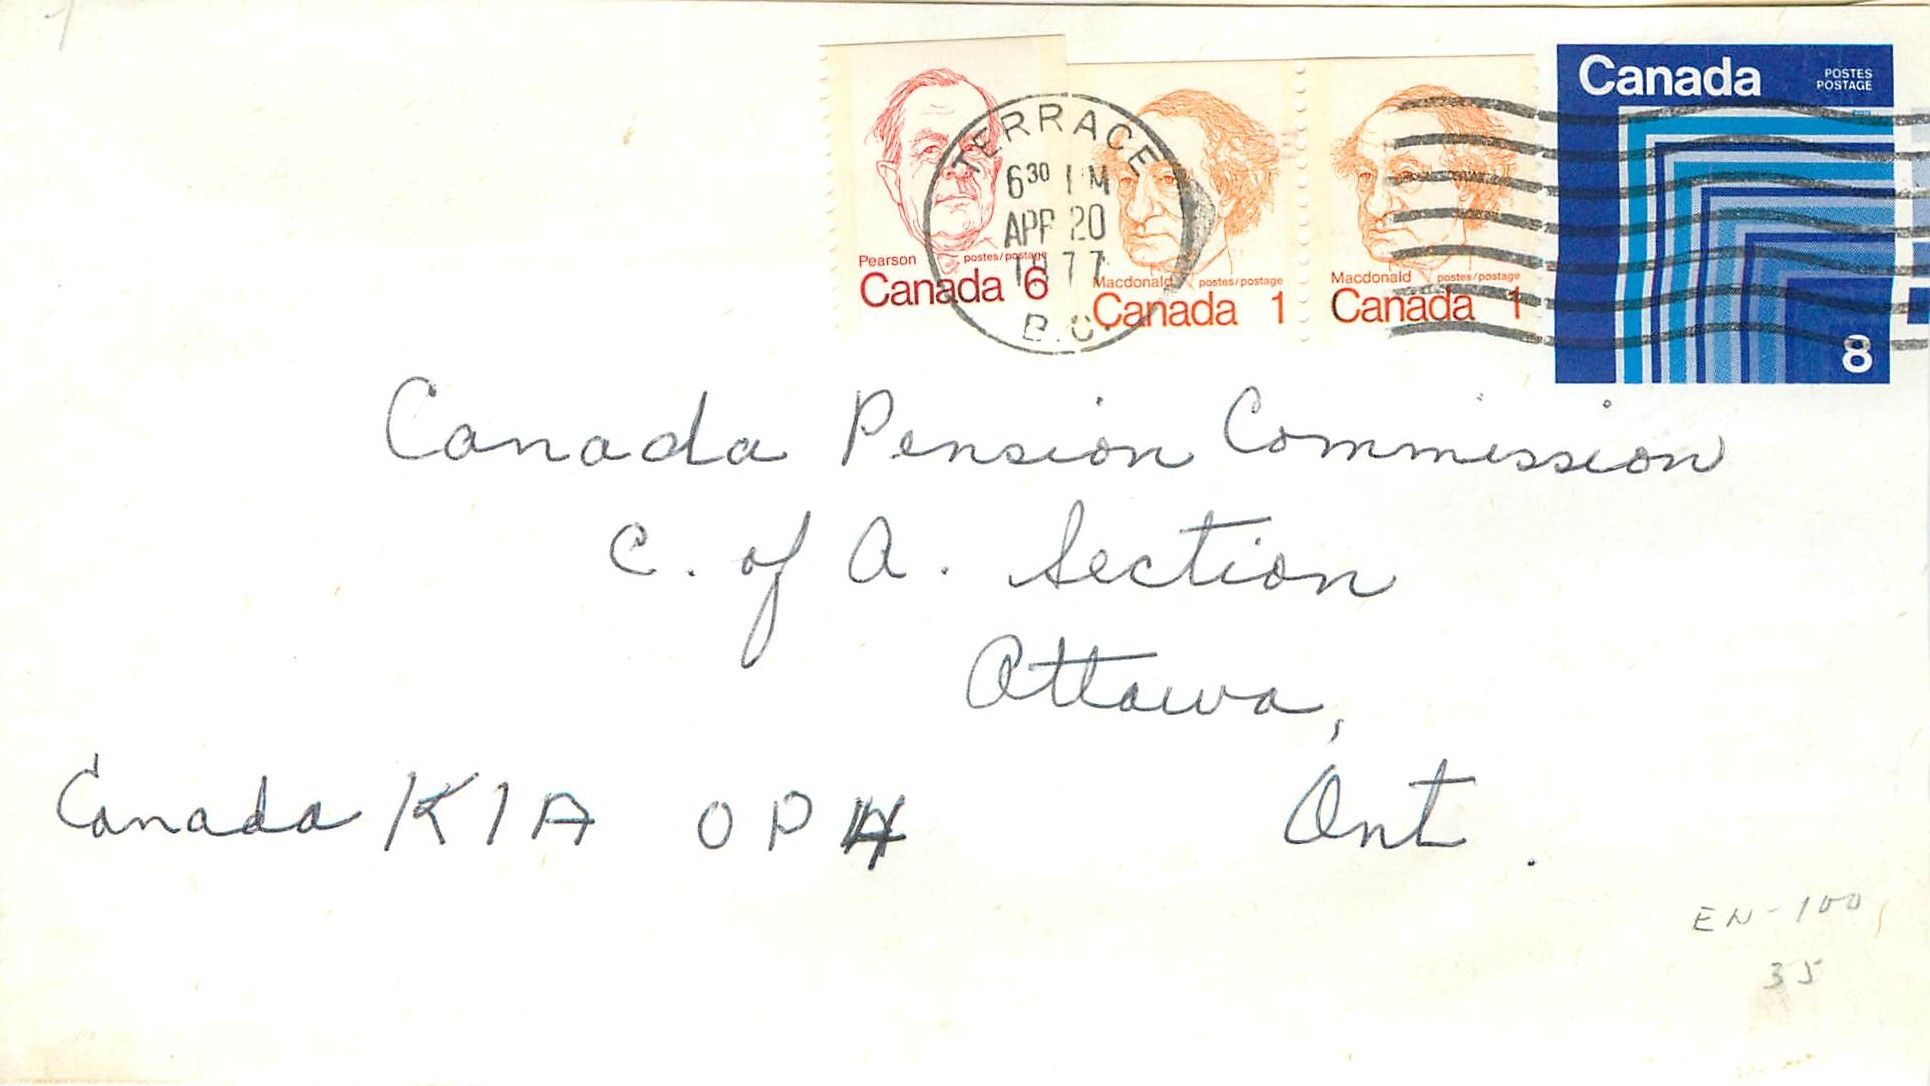 Canada POSTES
POSTAGE
8
Pearson postes/postage
Canada 6
Macdonald postes/postage
Canada 1
Macdonald postes/postage
Canada 1
TERRACE
6 30 PM
APR 20
1977
B.C.
Canada Pension Commission
C. of A. Section
Ottawa,
Canada K1A 0P4 Ont.
EN-100
35